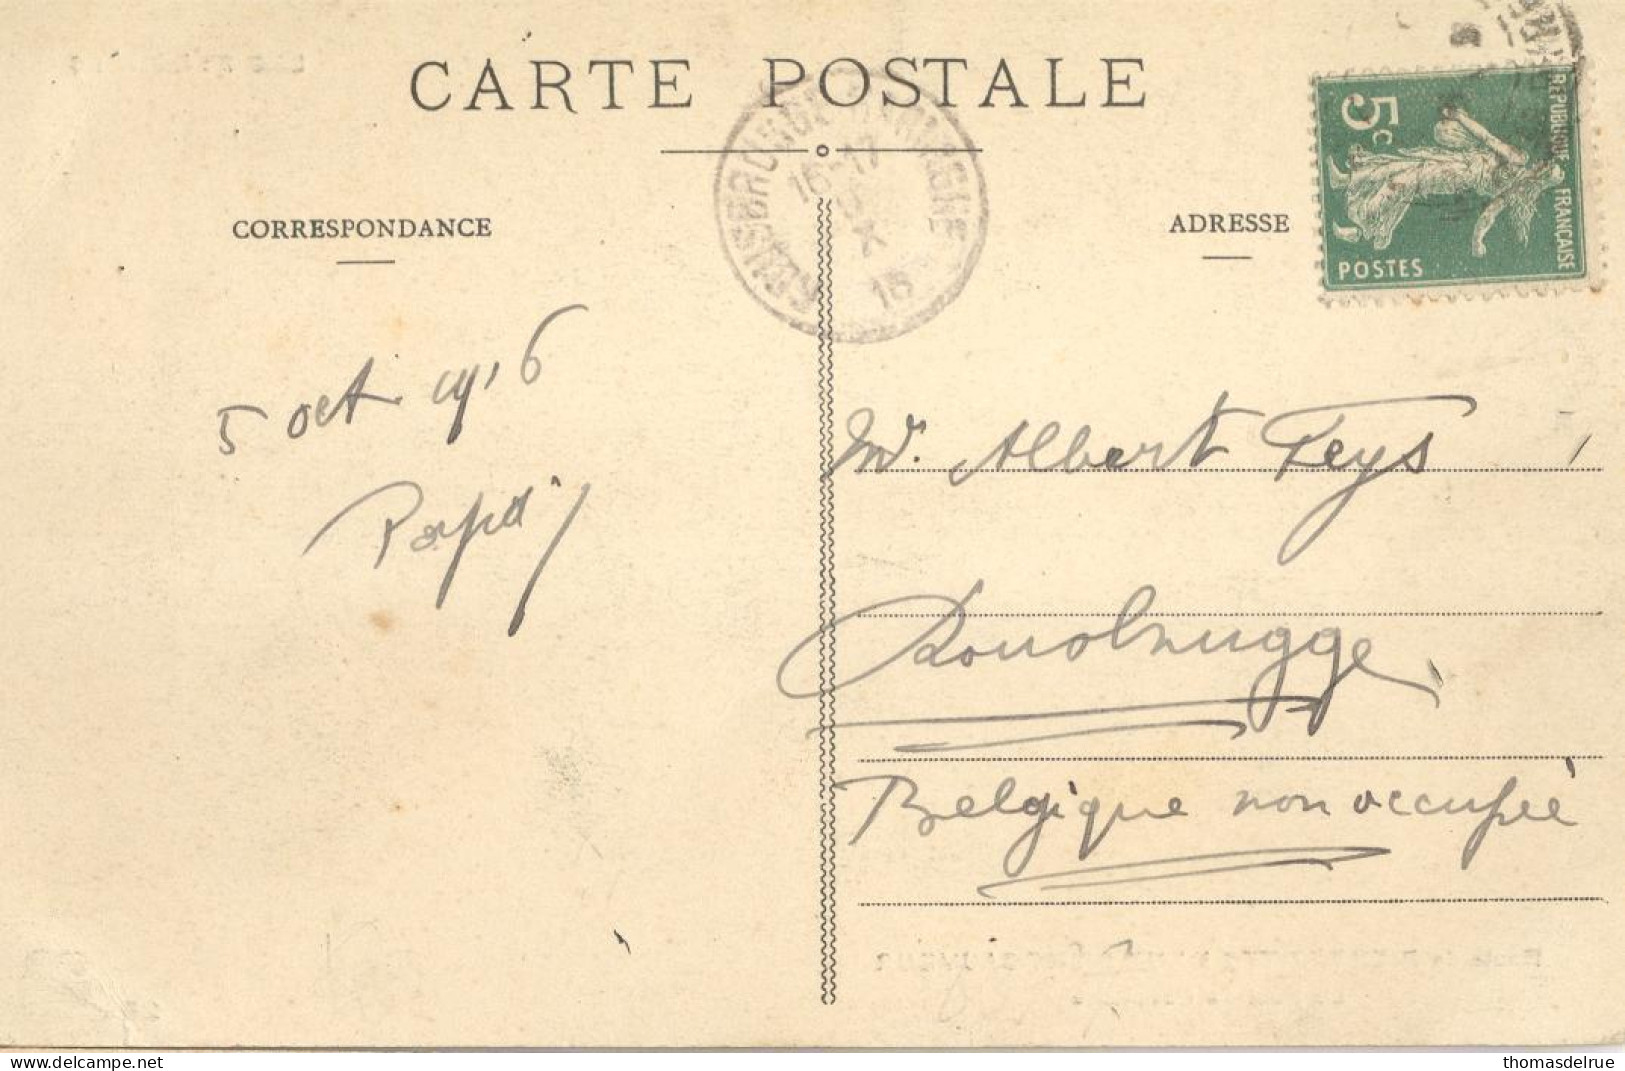 CARTE POSTALE
CORRESPONDANCE
ADRESSE
5c
REPUBLIQUE FRANÇAISE
POSTES
16-17
5 X
16
5 oct 1916
Mr. Albert Feys
Rousbrugge
Belgique non occupée
delcampe.net
thomasdelrue